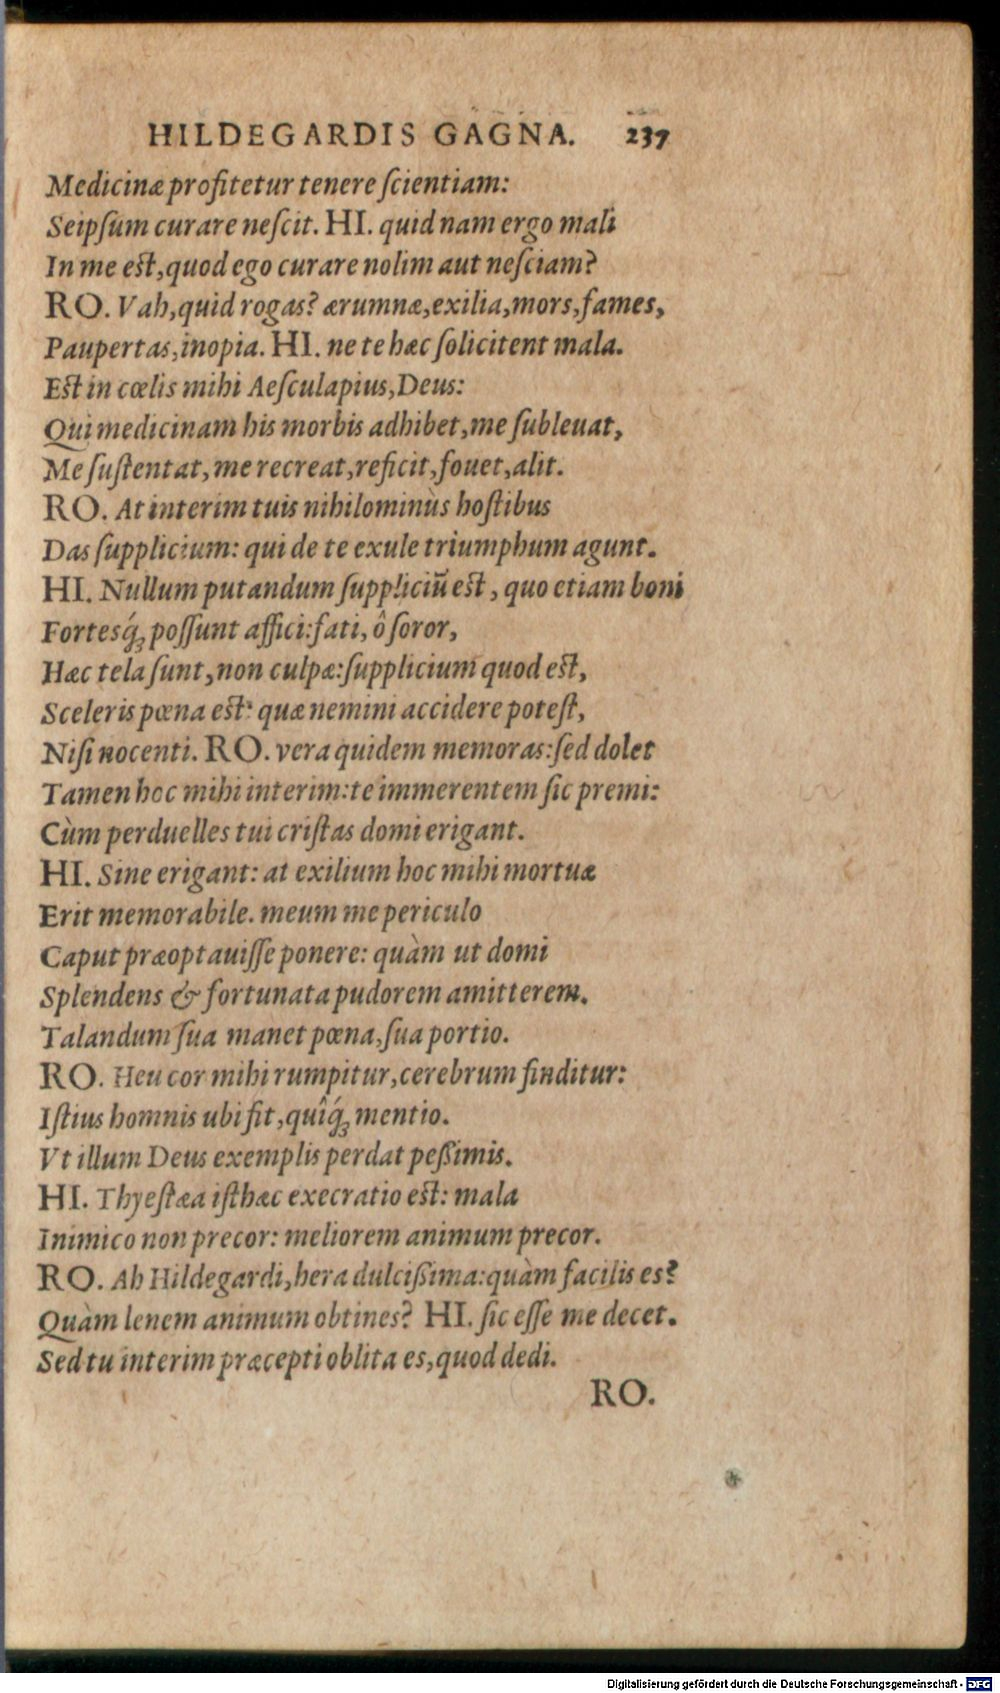 HILDEGARDIS GAGNA. 237
Medicinæ profitetur tenere ſcientiam:
Seipſum curare neſcit. HI. quid nam ergo mali
In me eſt, quod ego curare nolim aut neſciam?
RO. Vah, quid rogas? ærumnæ, exilia, mors, fames,
Paupertas, inopia. HI. ne te hæc ſolicitent mala.
Eſt in cœlis mihi Aeſculapius, Deus:
Qui medicinam his morbis adhibet, me ſubleuat,
Me ſuſtentat, me recreat, reficit, fouet, alit.
RO. At interim tuis nihilominùs hoſtibus
Das ſupplicium: qui de te exule triumphum agunt.
HI. Nullum putandum ſuppliciũ eſt, quo etiam boni
Fortesq́ꝫ poſſunt affici: fati, ô ſoror,
Hæc tela ſunt, non culpæ: ſupplicium quod eſt,
Sceleris pœna eſt: quæ nemini accidere poteſt,
Niſi nocenti. RO. vera quidem memoras: ſed dolet
Tamen hoc mihi interim: te immerentem ſic premi:
Cùm perduelles tui criſtas domi erigant.
HI. Sine erigant: at exilium hoc mihi mortuæ
Erit memorabile. meum me periculo
Caput præoptauiſſe ponere: quàm ut domi
Splendens & fortunata pudorem amitterem.
Talandum ſua manet pœna, ſua portio.
RO. Heu cor mihi rumpitur, cerebrum finditur:
Iſtius homnis ubi fit, quîq́ꝫ mentio.
Vt illum Deus exemplis perdat peßimis.
HI. Thyeſtæa iſthæc execratio eſt: mala
Inimico non precor: meliorem animum precor.
RO. Ah Hildegardi, hera dulcißima: quàm facilis es?
Quàm lenem animum obtines? HI. ſic eſſe me decet.
Sed tu interim præcepti oblita es, quod dedi.
RO.
Digitalisierung gefördert durch die Deutsche Forschungsgemeinschaft - DFG